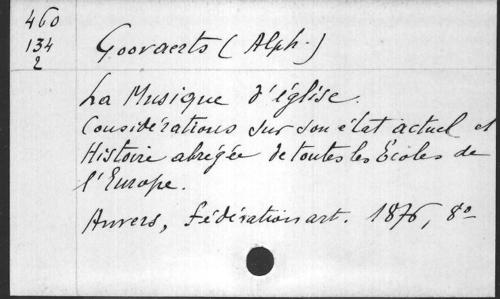 460
134
2
Goovaerts (Alph.)
La Musique d'église.
Considérations sur son état actuel et
Histoire abrégée de toutes les Écoles de
l'Europe.
Anvers, Fédération art. 1876, 8º